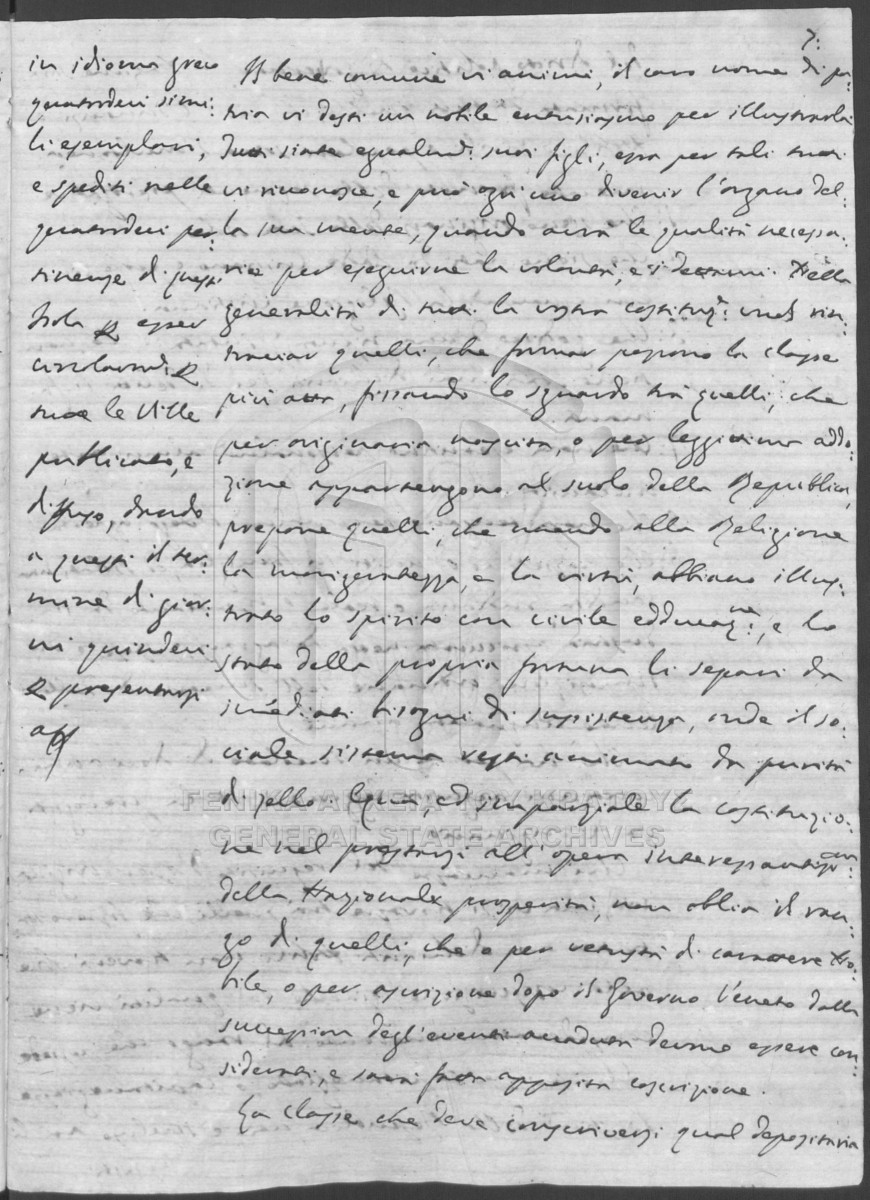 7:
in idioma greco
quatordeci simi:
li esemplari,
e spediti nelle
quatordeci per:
tinenze di quest'
Isola esser
circolarmte
tutte le Ville
publicato, e
diffuso, dando
a questi il ter:
mine di gior:
ni quindeci
presentarsi
Il bene comune vi animi, il caro nome di pa:
tria vi desti un nobile entusiasmo per illustrarla
Tutti siete egualmte: suoi figli, essa per tali tutti
vi riconosce, e può ogni uno divenir l'organo del:
la sua mente, quando avrà le qualità necessa:
rie per eseguirne la volontà, e i dettami. Nella
generalità di tutti la vostra costituzne: rin:
tracciar quelli, che formar possono la classe
più atta, fissando lo sguardo trà quelli, che
per originaria nascita, o per leggitima addo:
zione appartengono al suolo della Republica,
prepone quelli, che unendo alla Religione
la morigeratezza, e la virtù, abbiano illus:
trato lo spirito con civile edducazne:, e lo
stato della propria fortuna li separi da
imediati bisogni di susistenza, onde il so:
ciale sistema resti animato da purità
di zello. Equa, ed imparziale la costituzio:
ne nel prestarsi all'opera interessantissma:
della Nazionale prosperità, non oblia il ran:
go di quelli, che o per vetustà di carattere No:
bile, o per ascrizione dopo il Governo Veneto dalla
succession degl'eventi accaduta devono essere con:
siderati, e sarà fatta apposita coscrizione.
La classe che deve conscriversi qual depositaria
ΓΕΝΙΚΑ ΑΡΧΕΙΑ ΤΟΥ ΚΡΑΤΟΥΣ
GENERAL STATE ARCHIVES